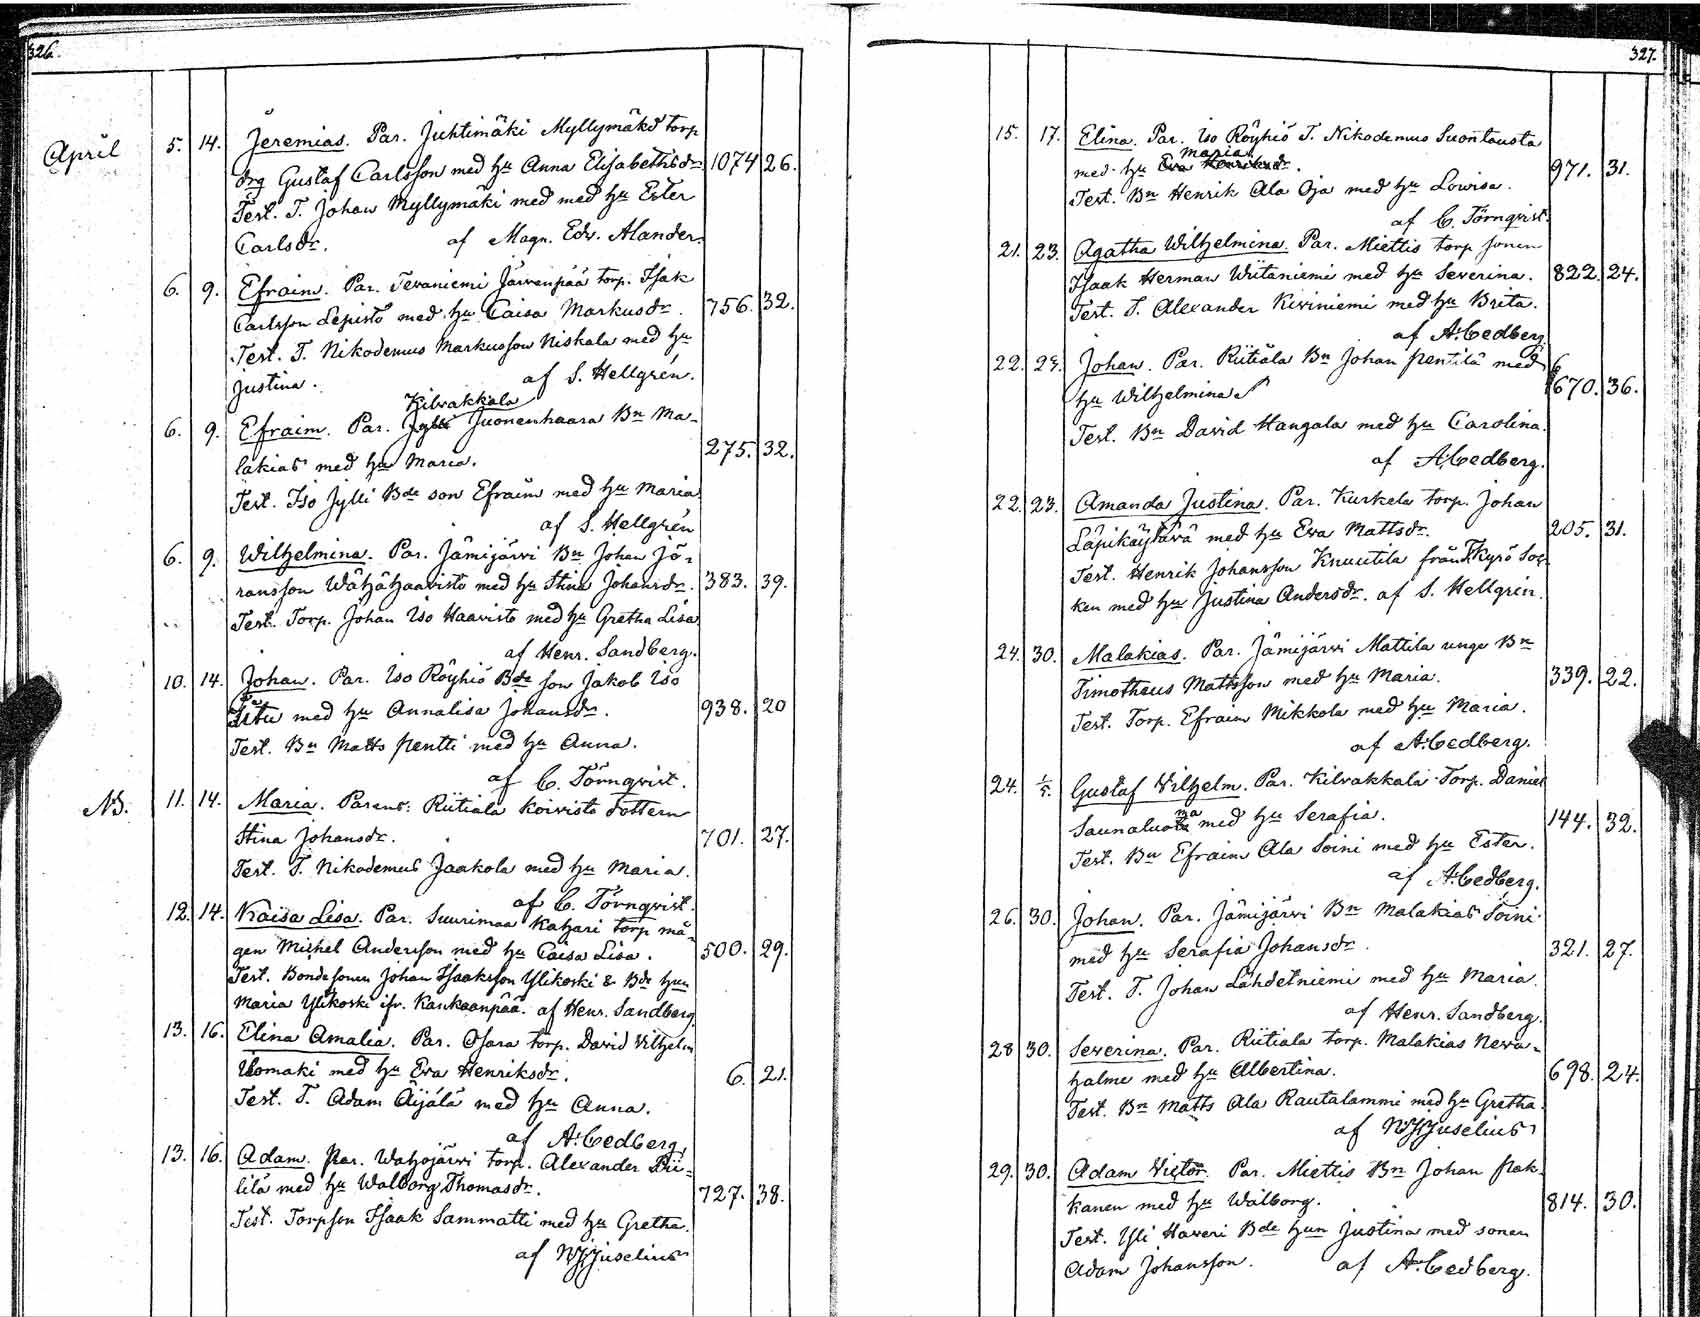 326.
April
5. 14. Jeremias. Par. Juhtimäki Myllymäks torp
drg Gustaf Carlsson med hu Anna Elisabethsdr 1074 26.
Test. T. Johan Myllymäki med med hu Ester
Carlsdr. af Magn. Edv. Alander.
6. 9. Efraim. Par. Tevaniemi Järvenpää torp. Isak
Carlsson Lepistö med hu Caisa Markusdr. 756. 32.
Test. T. Nikodemus Markusson Niskala med hu
Justina. af S. Hellgrén.
Kilvakkala
6. 9. Efraim. Par. Juonenhaara Bn Ma-
lakias med hu Maria. 275. 32.
Test. Iso Jylli Bde son Efraim med hu Maria
af S. Hellgrén
6. 9. Wilhelmina. Par. Jämijärvi Bn Johan Jö-
ransson Wähähaavisto med hu Stina Johansdr. 383. 39.
Test. Torp. Johan Iso Haavisto med hu Gretha Lisa
af Henr. Sandberg.
10. 14. Johan. Par. Iso Röyhiö Bde son Jakob Iso
med hu Annalisa Johansdr. 938. 20
Test. Bn Matts Pentti med hu Anna.
af C. Törnqvist.
NB. 11. 14. Maria. Parens: Riitiala Koivisto dottern
Stina Johansdr. 701. 27.
Test. T. Nikodemus Jaakola med hu Maria.
af C. Törnqvist.
12. 14. Kaisa Lisa. Par. Suurimaa Katzari torp må-
gen Michel Andersson med hu Caisa Lisa. 500. 29.
Test. Bondesonen Johan Isaaksson Ylikoski & Bde hun
Maria Ylikoski ifr. Kankaanpää. af Henr. Sandberg
13. 16. Elina Amalia. Par. Osara torp. David Vilhelm
med hu Eva Henriksdr. 6. 21.
Test. T. Adam Äijälä med hu Anna.
af A. Cedberg.
13. 16. Adam. Par. Wahojärvi torp. Alexander Pii-
lilä med hu Walborg Thomasdr. 727. 38.
Test. Torpson Isaak Sammatti med hu Gretha.
af Juselius
327.
15. 17. Elina. Par. Iso Röyhiö T. Nikodemus Suontausta
Maria
med hu Eva Henriksdr. 971. 31.
Test. Bn Henrik Ala Oja med hu Lowisa.
af C. Törnqvist.
21. 23. Agatha Wilhelmina. Par. Miettis torp sonen
Isaak Herman Wiitaniemi med hu Severina. 822. 24.
Test. T. Alexander Kiviniemi med hu Brita.
af A. Cedberg
22. 24. Johan. Par. Riitiala Bn Johan Pentilä med
hu Wilhelmina 670. 36.
Test. Bn David Hangala med hu Carolina.
af A. Cedberg.
22. 23. Amanda Justina. Par. Kurkela torp. Johan
Läpikäytävä med hu Eva Mattsdr. 205. 31.
Test. Henrik Johansson Knuutila från Ikyrö Soc-
ken med hu Justina Andersdr. af S. Hellgrén.
24. 30. Malakias. Par. Jämijärvi Mattila unge Bn
Timotheus Mattsson med hu Maria. 339. 22.
Test. Torp. Efraim Mikkola med hu Maria.
af A. Cedberg.
24. 1/5. Gustaf Vilhelm. Par. Kilvakkala Torp. Daniel
Saunaluoma med hu Serafia. 144. 32.
Test. Bn Efraim Ala Soini med hu Ester.
af A. Cedberg.
26. 30. Johan. Par. Jämijärvi Bn Malakias Soini
med hu Serafia Johansdr. 321. 27.
Test. T. Johan Lähdetniemi med hu Maria.
af Henr. Sandberg.
28 30. Severina. Par. Riitiala torp. Malakias Neva-
halme med hu Albertina. 698. 24.
Test. Bn Matts Ala Rautalammi med hu Gretha.
af Juselius
29. 30. Adam Victor. Par. Miettis Bn Johan Pak-
kanen med hu Walborg. 814. 30.
Test. Yli Haveri Bde hun Justina med sonen
Adam Johansson. af A. Cedberg.